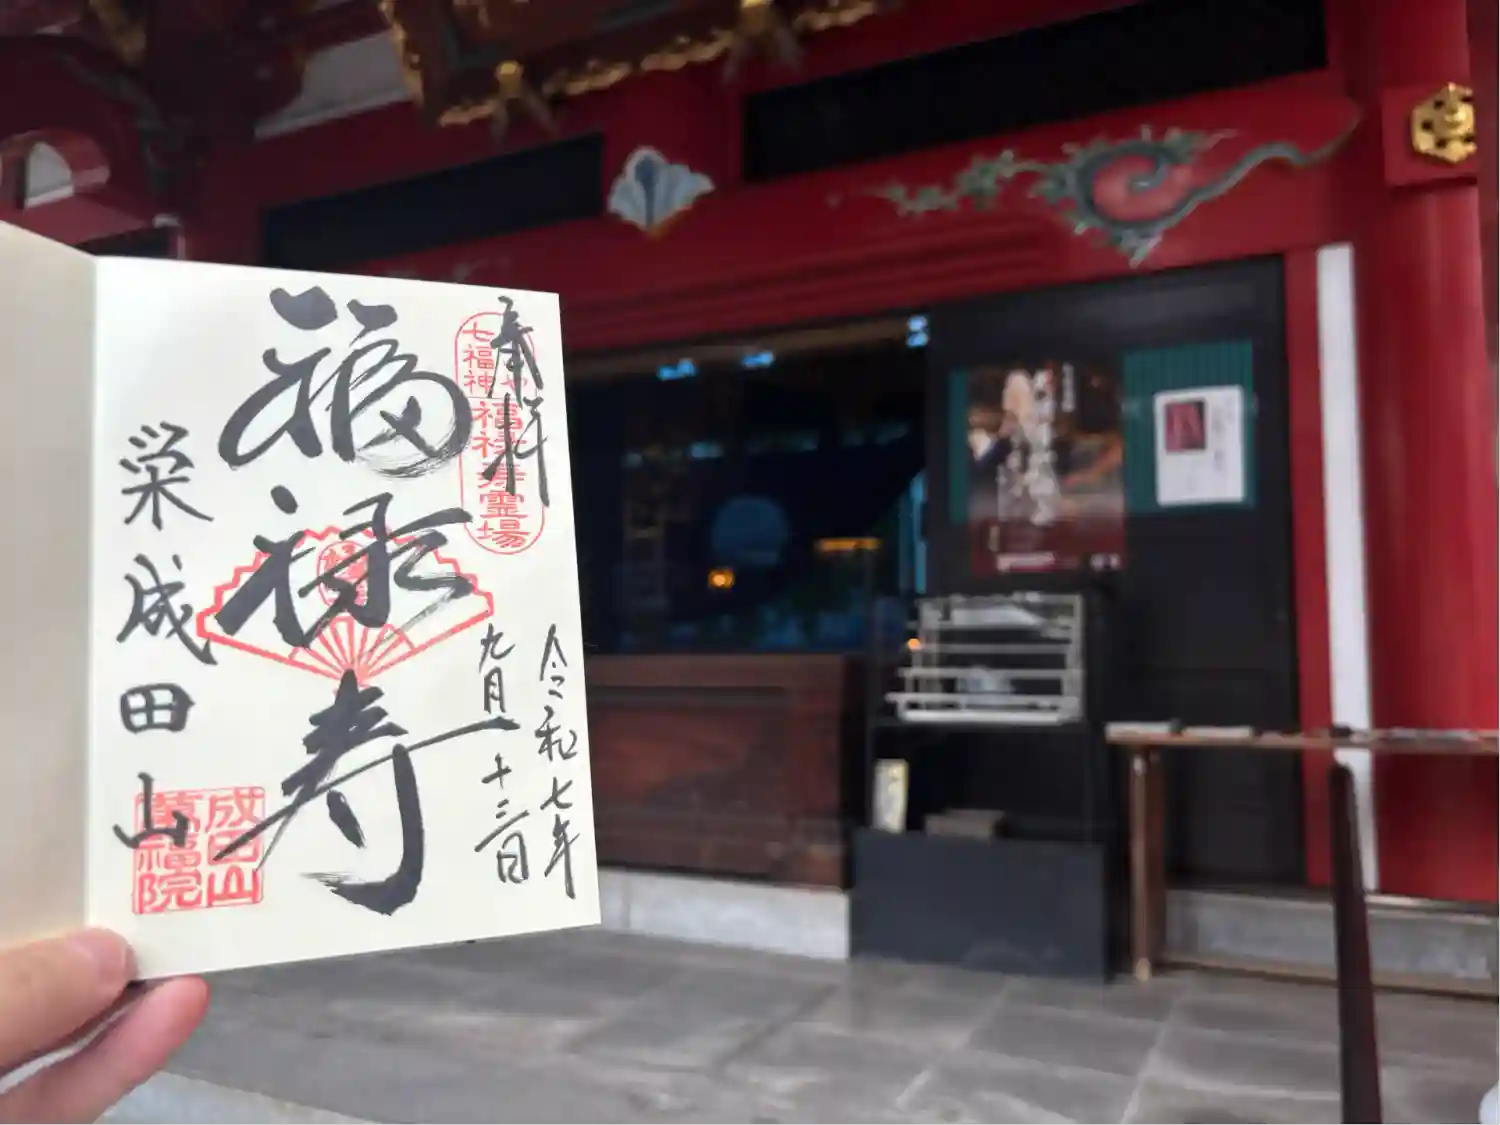 奉拝
七福神
福禄寿霊場
令和七年
九月二十三日
福禄寿
栄成田山
成田山
萬福院